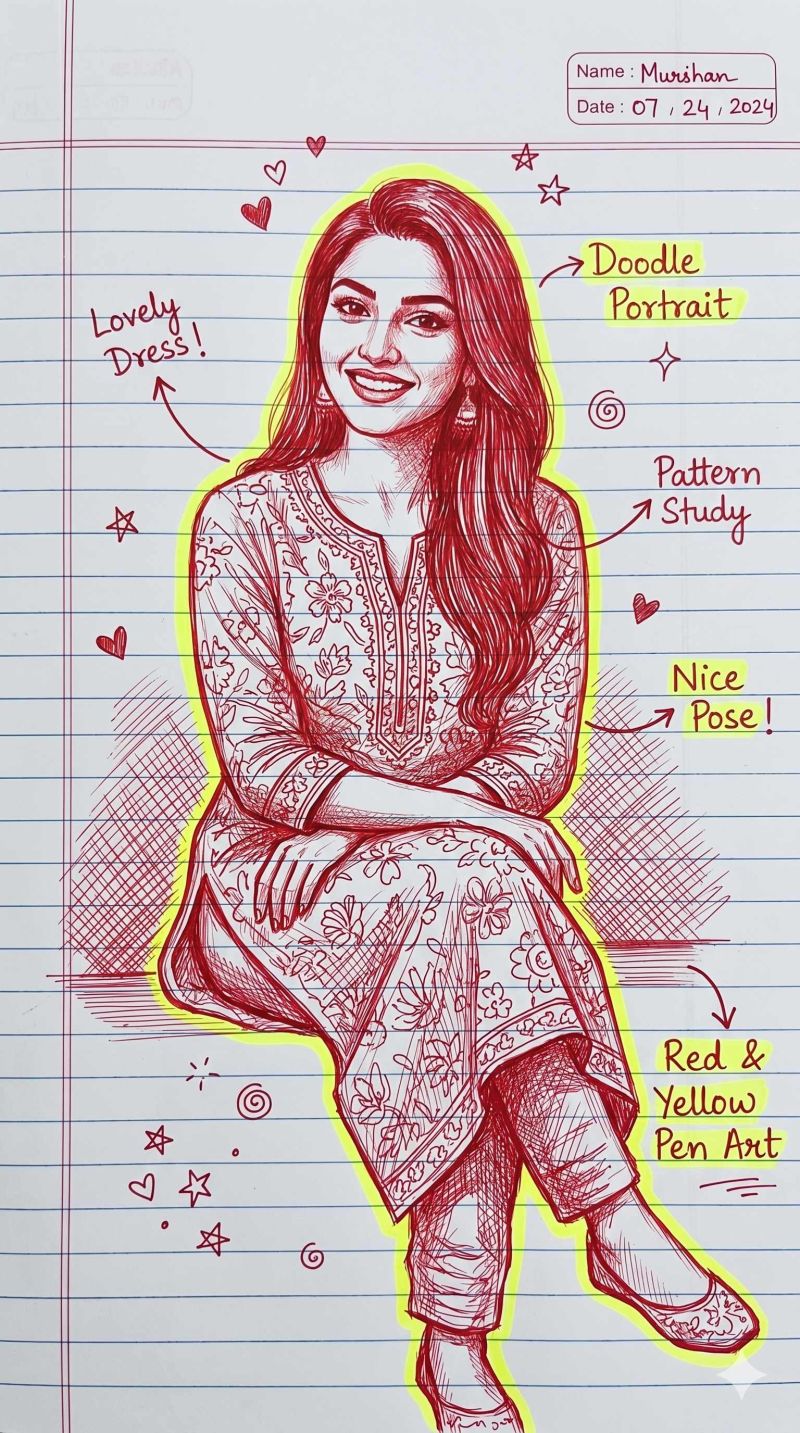 Name : Murshan
Date : 07 / 24 / 2024
Doodle
Portrait
Lovely
Dress!
Pattern
Study
Nice
Pose!
Red &
Yellow
Pen Art